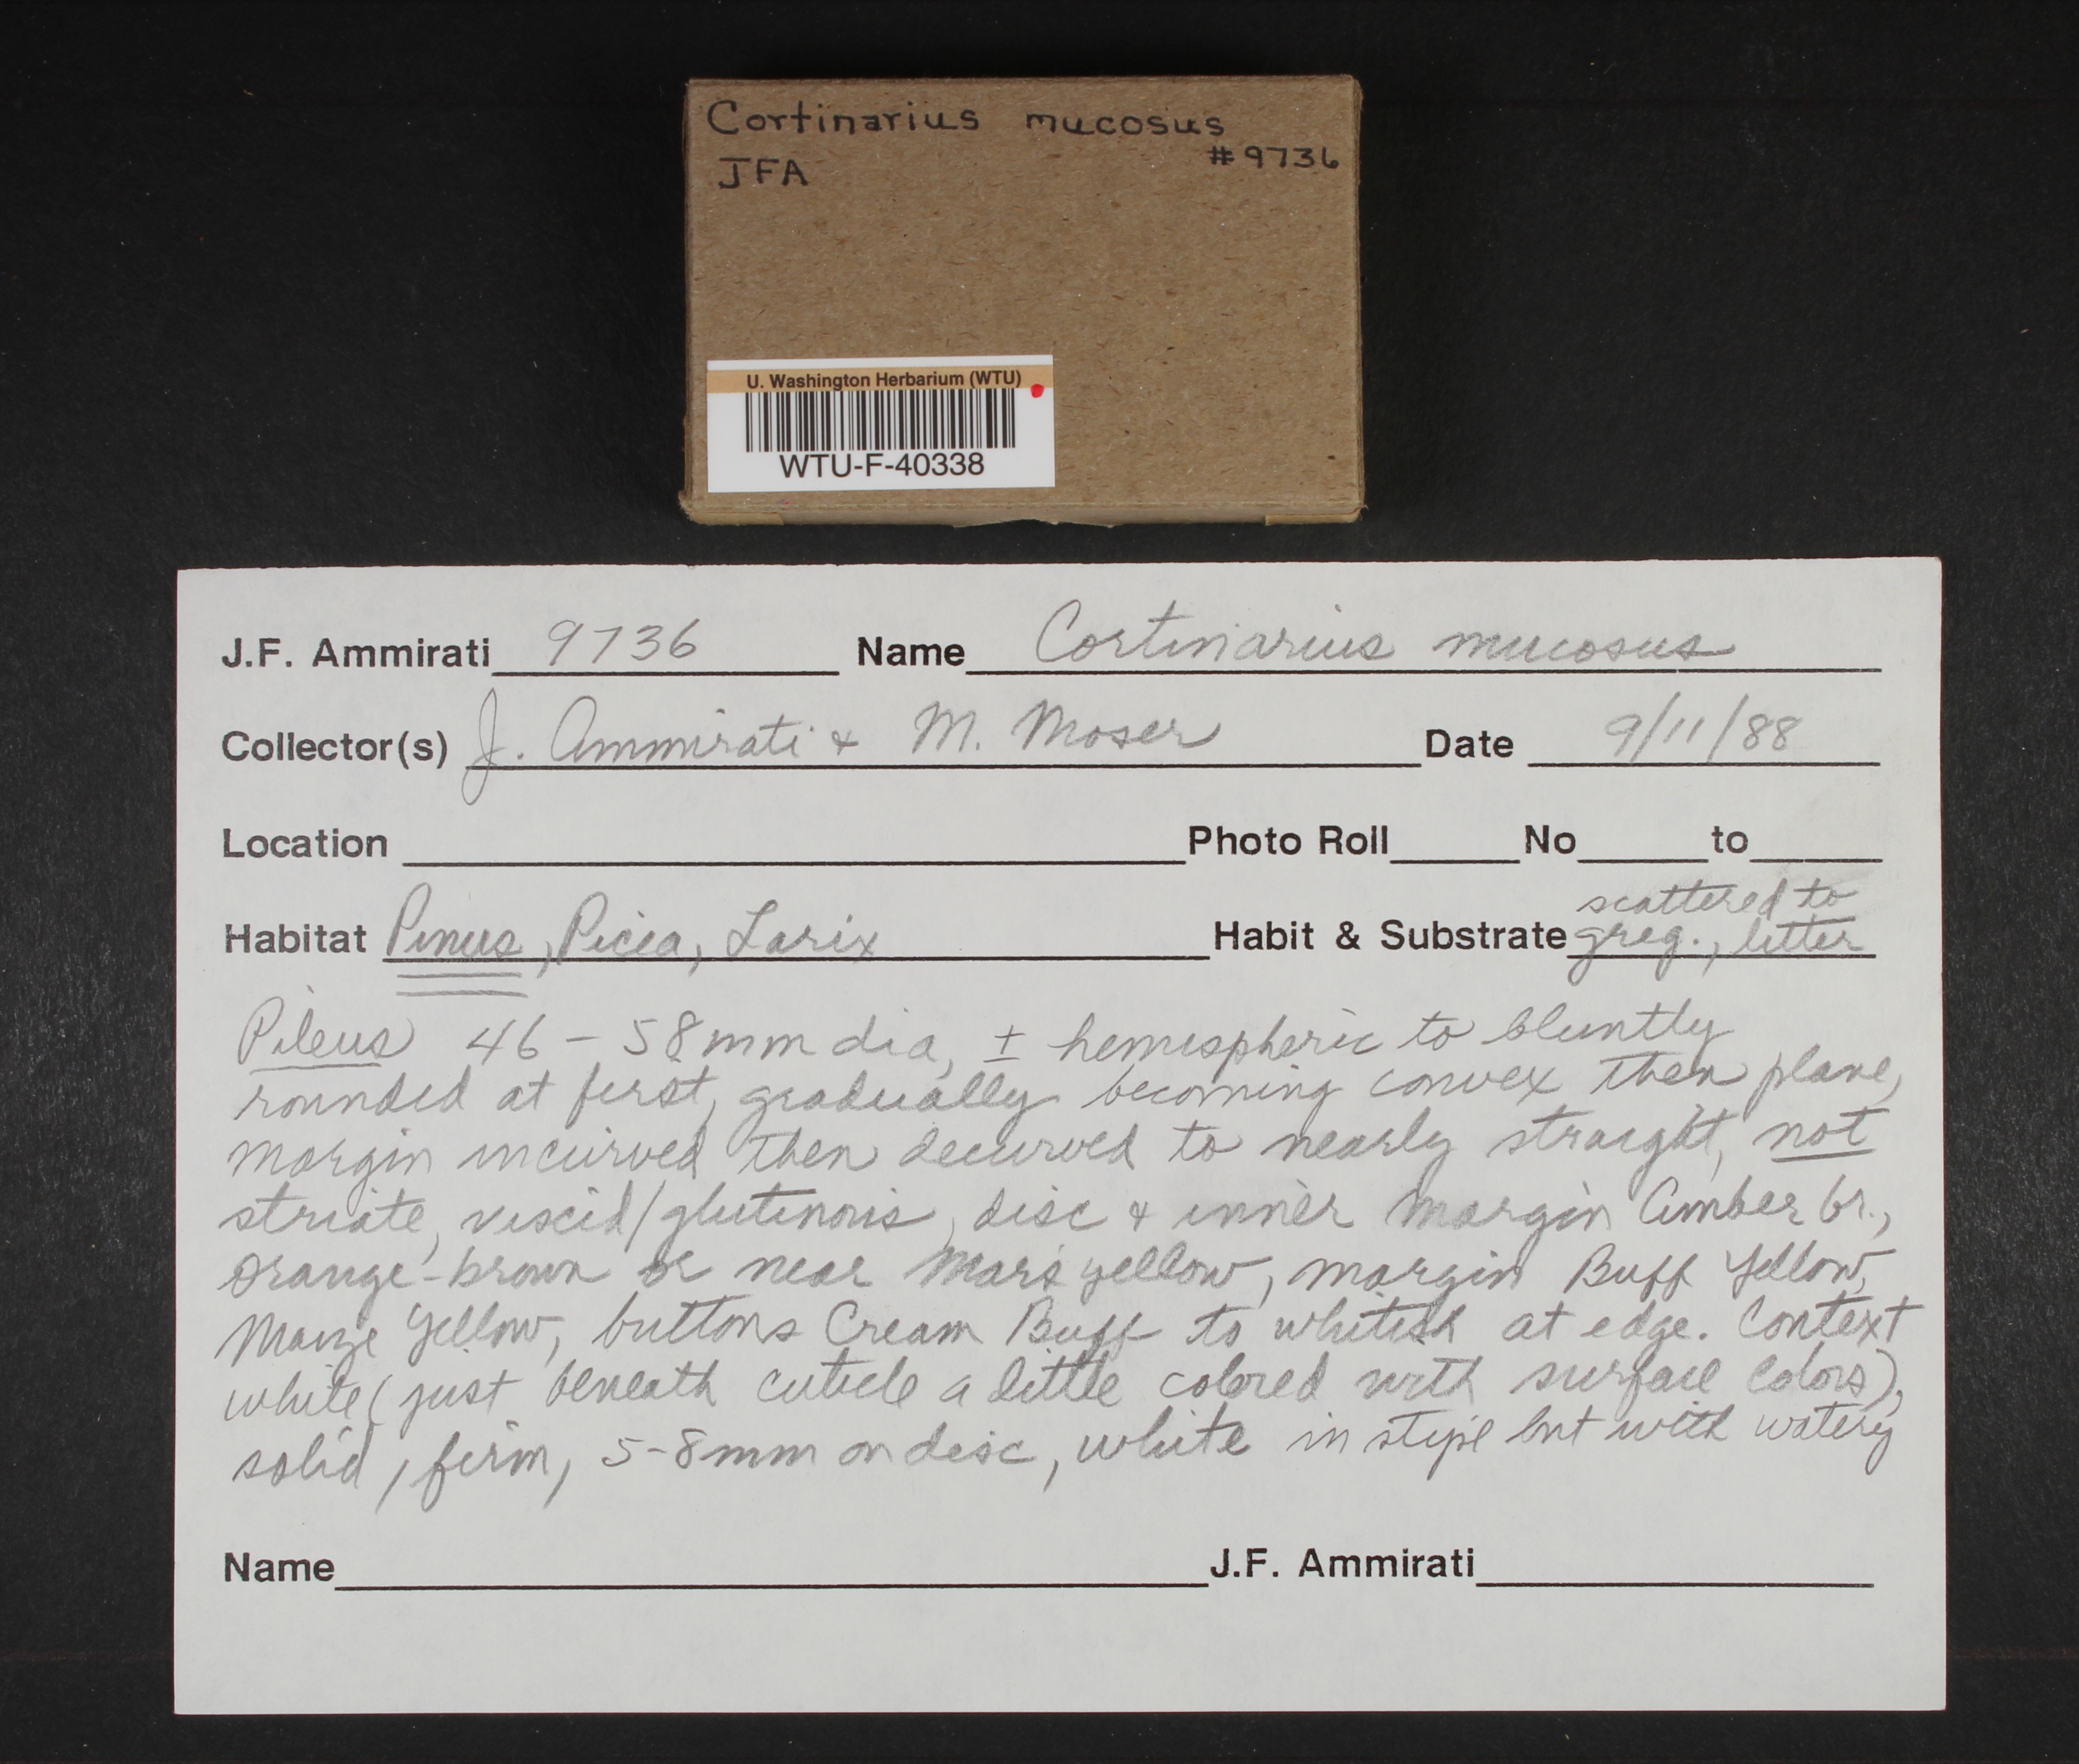 Cortinarius mucosus
JFA #9736
U. Washington Herbarium (WTU)
WTU-F-40338
J.F. Ammirati 9736 Name Cortinarius mucosus
Collector(s) J. Ammirati & M. Moser Date 9/11/88
Location Photo Roll No to
scattered to
Habitat Pinus, Picea, Larix Habit & Substrate greg., litter
Pileus 46 - 58mm dia, ± hemispheric to bluntly
rounded at first, gradually becoming convex then plane,
margin incurved then decurved to nearly straight, not
striate, viscid/glutinous, disc & inner margin Amber br.,
orange-brown or near Mars yellow, margin Buff Yellow,
Maize Yellow, buttons Cream Buff to whitish at edge. Context
white (just beneath cuticle a little colored with surface colors),
solid, firm, 5-8mm on disc, white in stipe but with watery
Name J.F. Ammirati